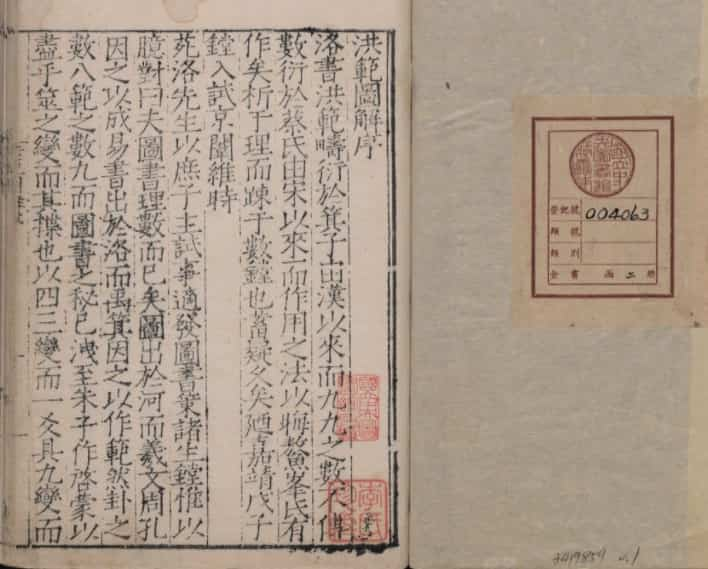 洪範圖解序
洛書洪範疇衍於箕子由漢以來而九九之數失傳
數衍於蔡氏由宋以來而作用之法以晦鰲峯氏有
作矣析于理而踈于數鏜也蓄疑久矣廼嘉靖戊子
鏜入試京闈維時
苑洛先生以庶子主試事適發圖書策諸生鏜惟以
臆對曰夫圖書理數而已矣圖出於河而羲文周孔
因之以成易書出於洛而禹箕因之以作範然卦之
數八範之數九而圖書之秘已洩至朱子作啓蒙以
盡乎筮之變而其揲也以四三變而一爻具九變而
登記號 004063
類號
類別
全書 函二冊
v.1